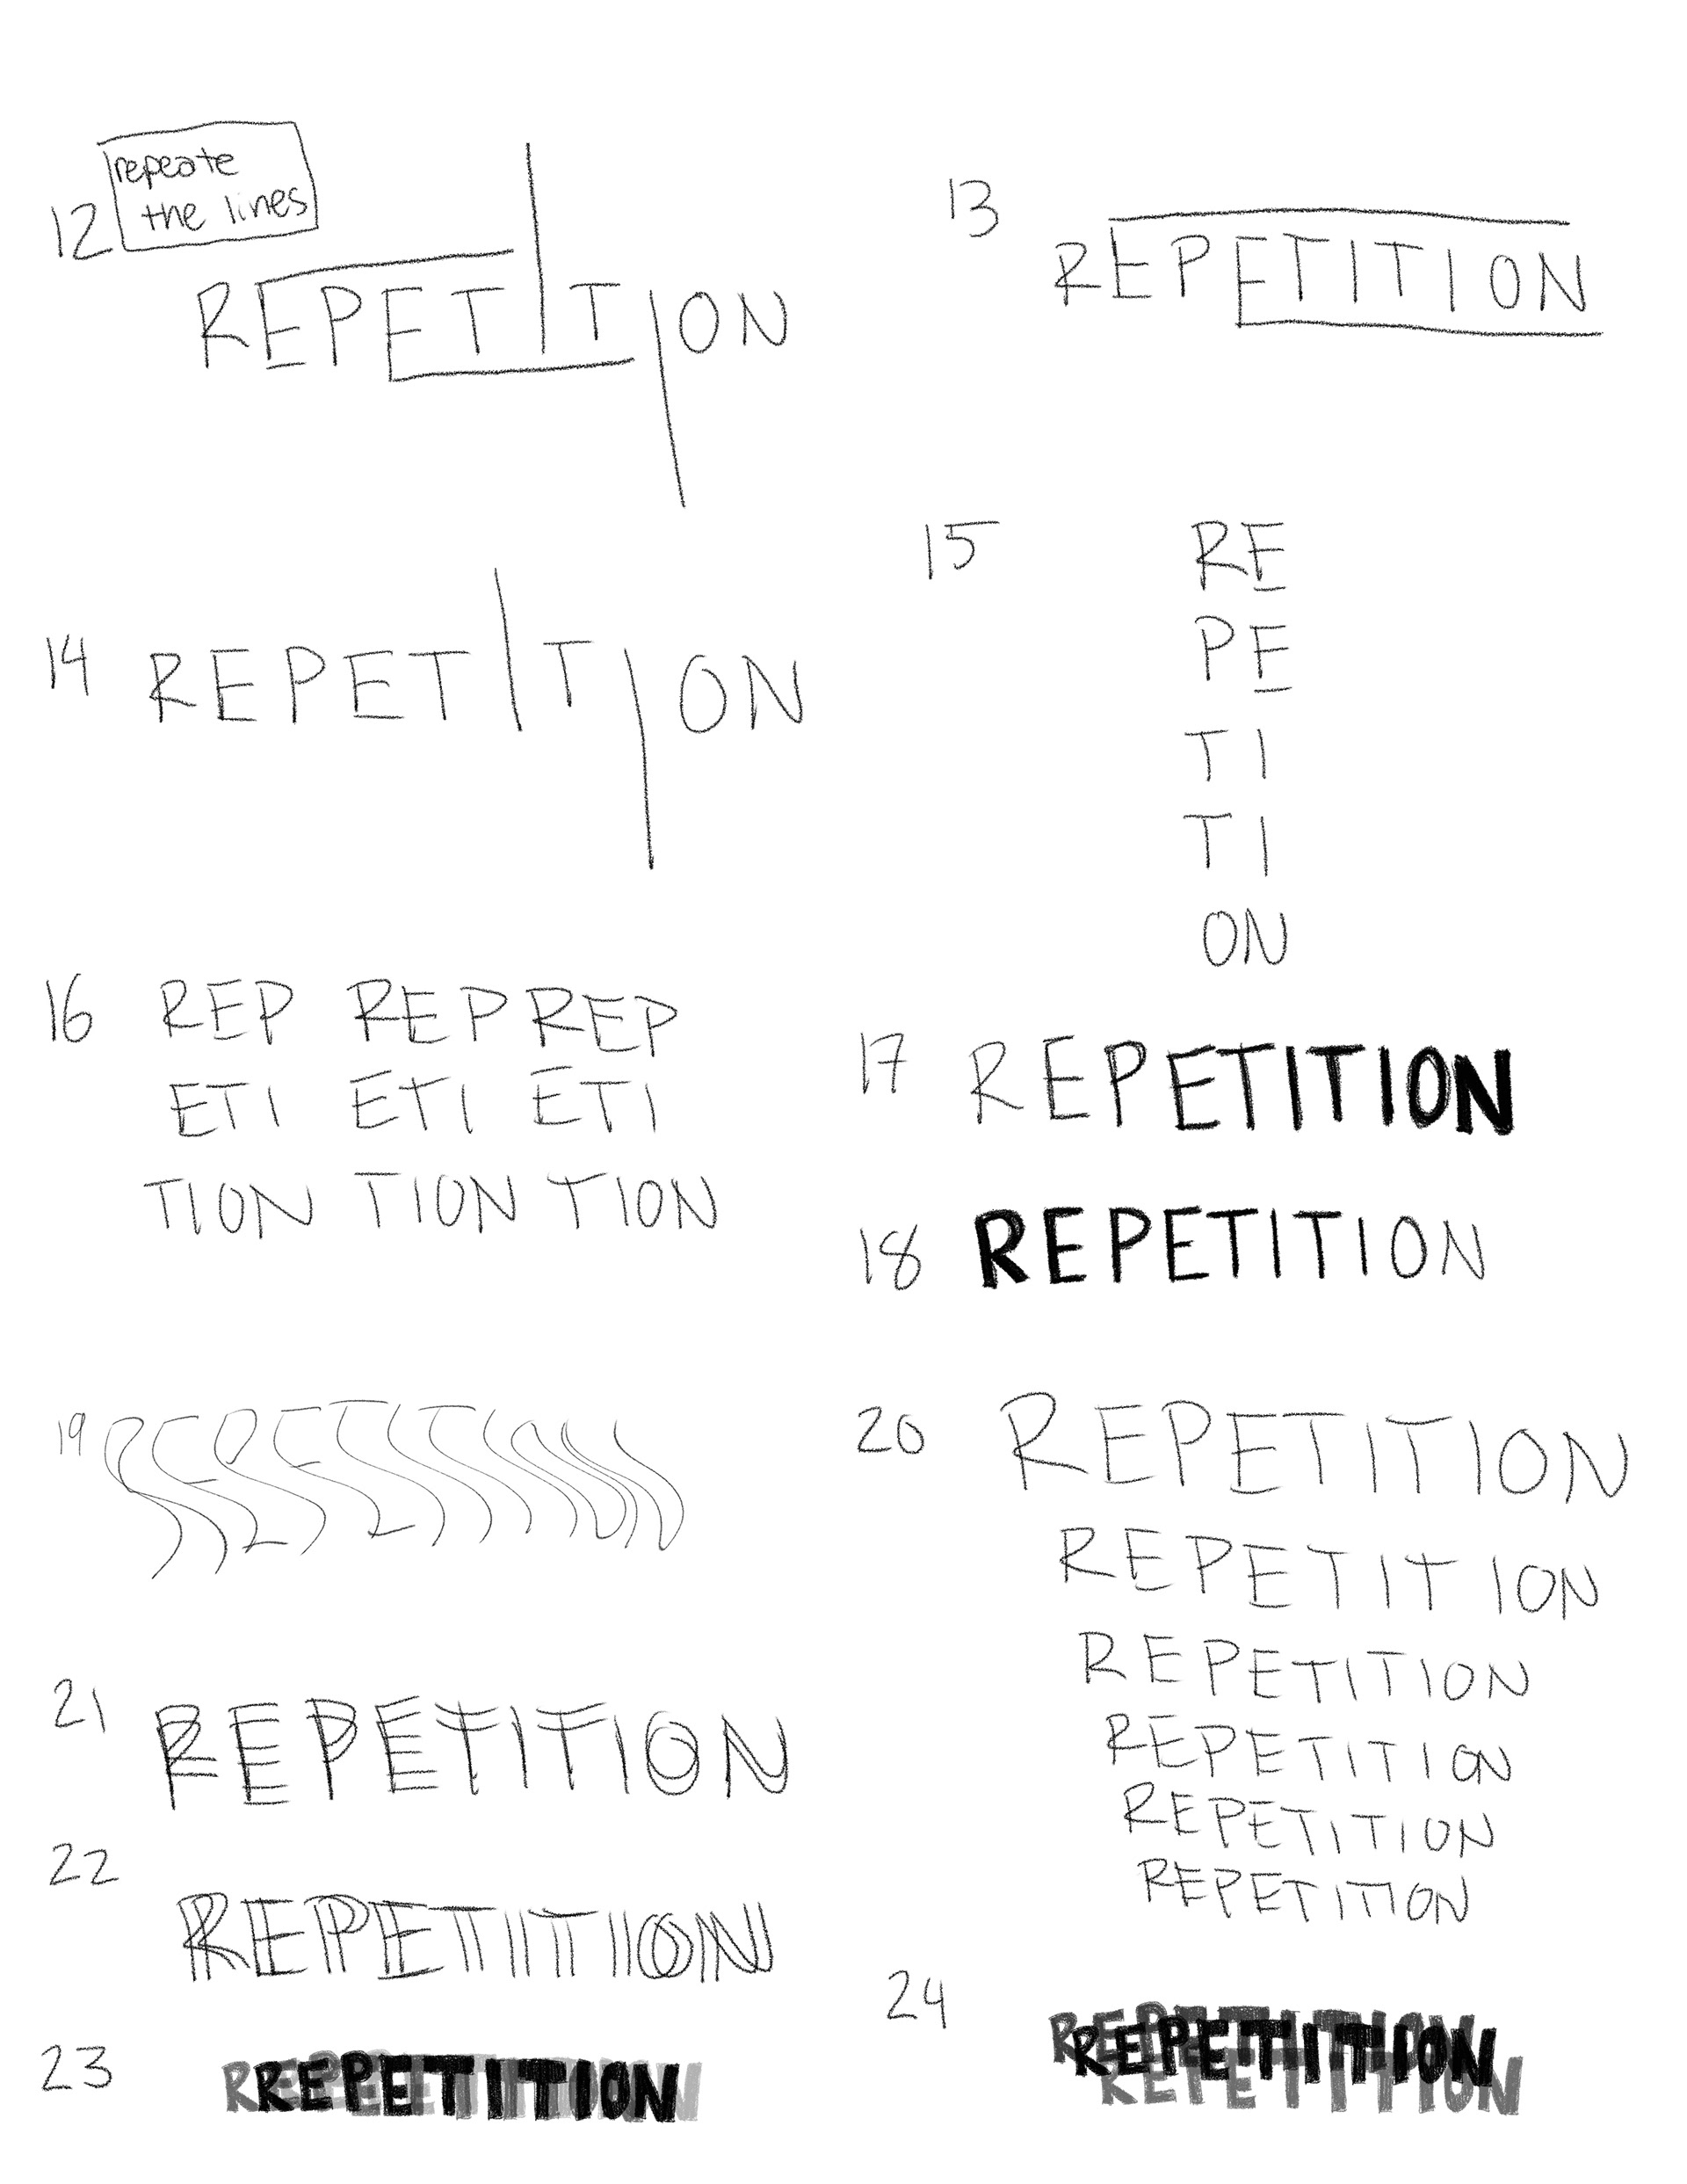 12
repeate
the lines
REPETITION
13
REPETITION
14
REPETITION
15
RE
PE
TI
TI
ON
16
REP REP REP
ETI ETI ETI
TION TION TION
17
REPETITION
18
REPETITION
19
REPETITION
20
REPETITION
REPETITION
REPETITION
REPETITION
REPETITION
REPETITION
21
REPETITION
22
REPETITION
23
REPETITION
24
REPETITION
REPETITION
REPETITION